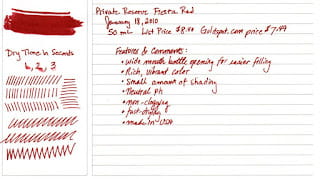 Private Reserve Fiesta Red
January 18, 2010
50 ml List Price $8.80 Gouletpens.com price $7.99
Features & Comments:
• wide mouth bottle opening for easier filling
• Rich, vibrant color
• Small amount of shading
• Neutral ph
• non-clogging
• fast-drying
• made in USA
Dry Time in Seconds
3